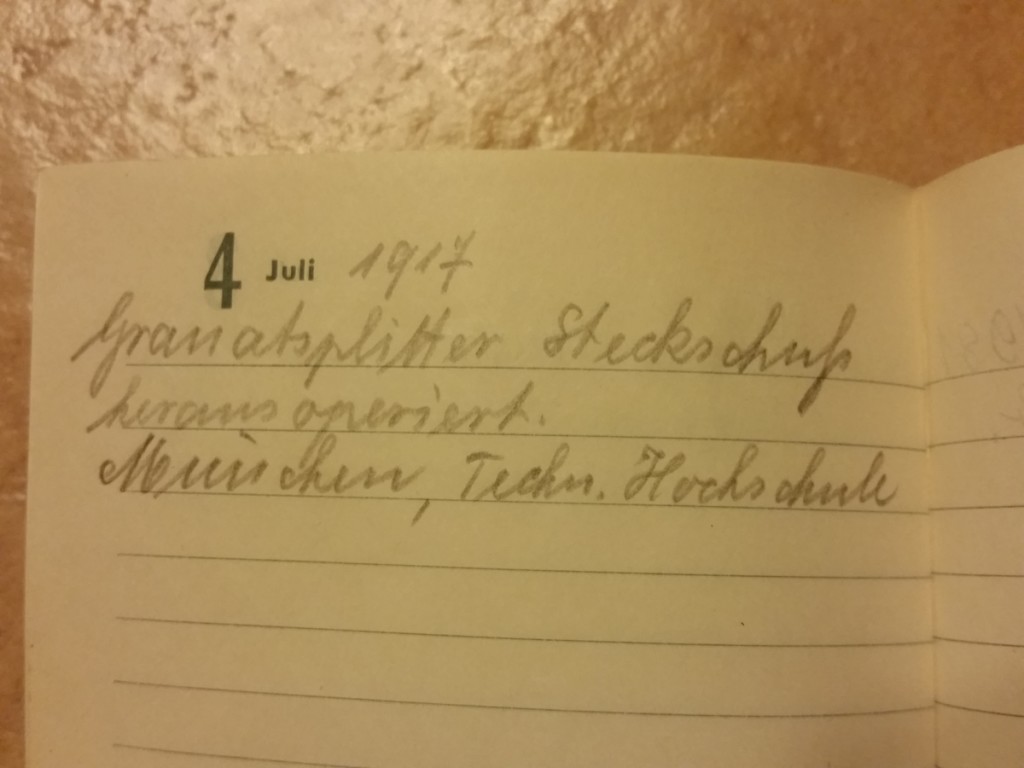 4 Juli 1917
Granatsplitter Steckschuß
herausoperiert.
München, Techn. Hochschule